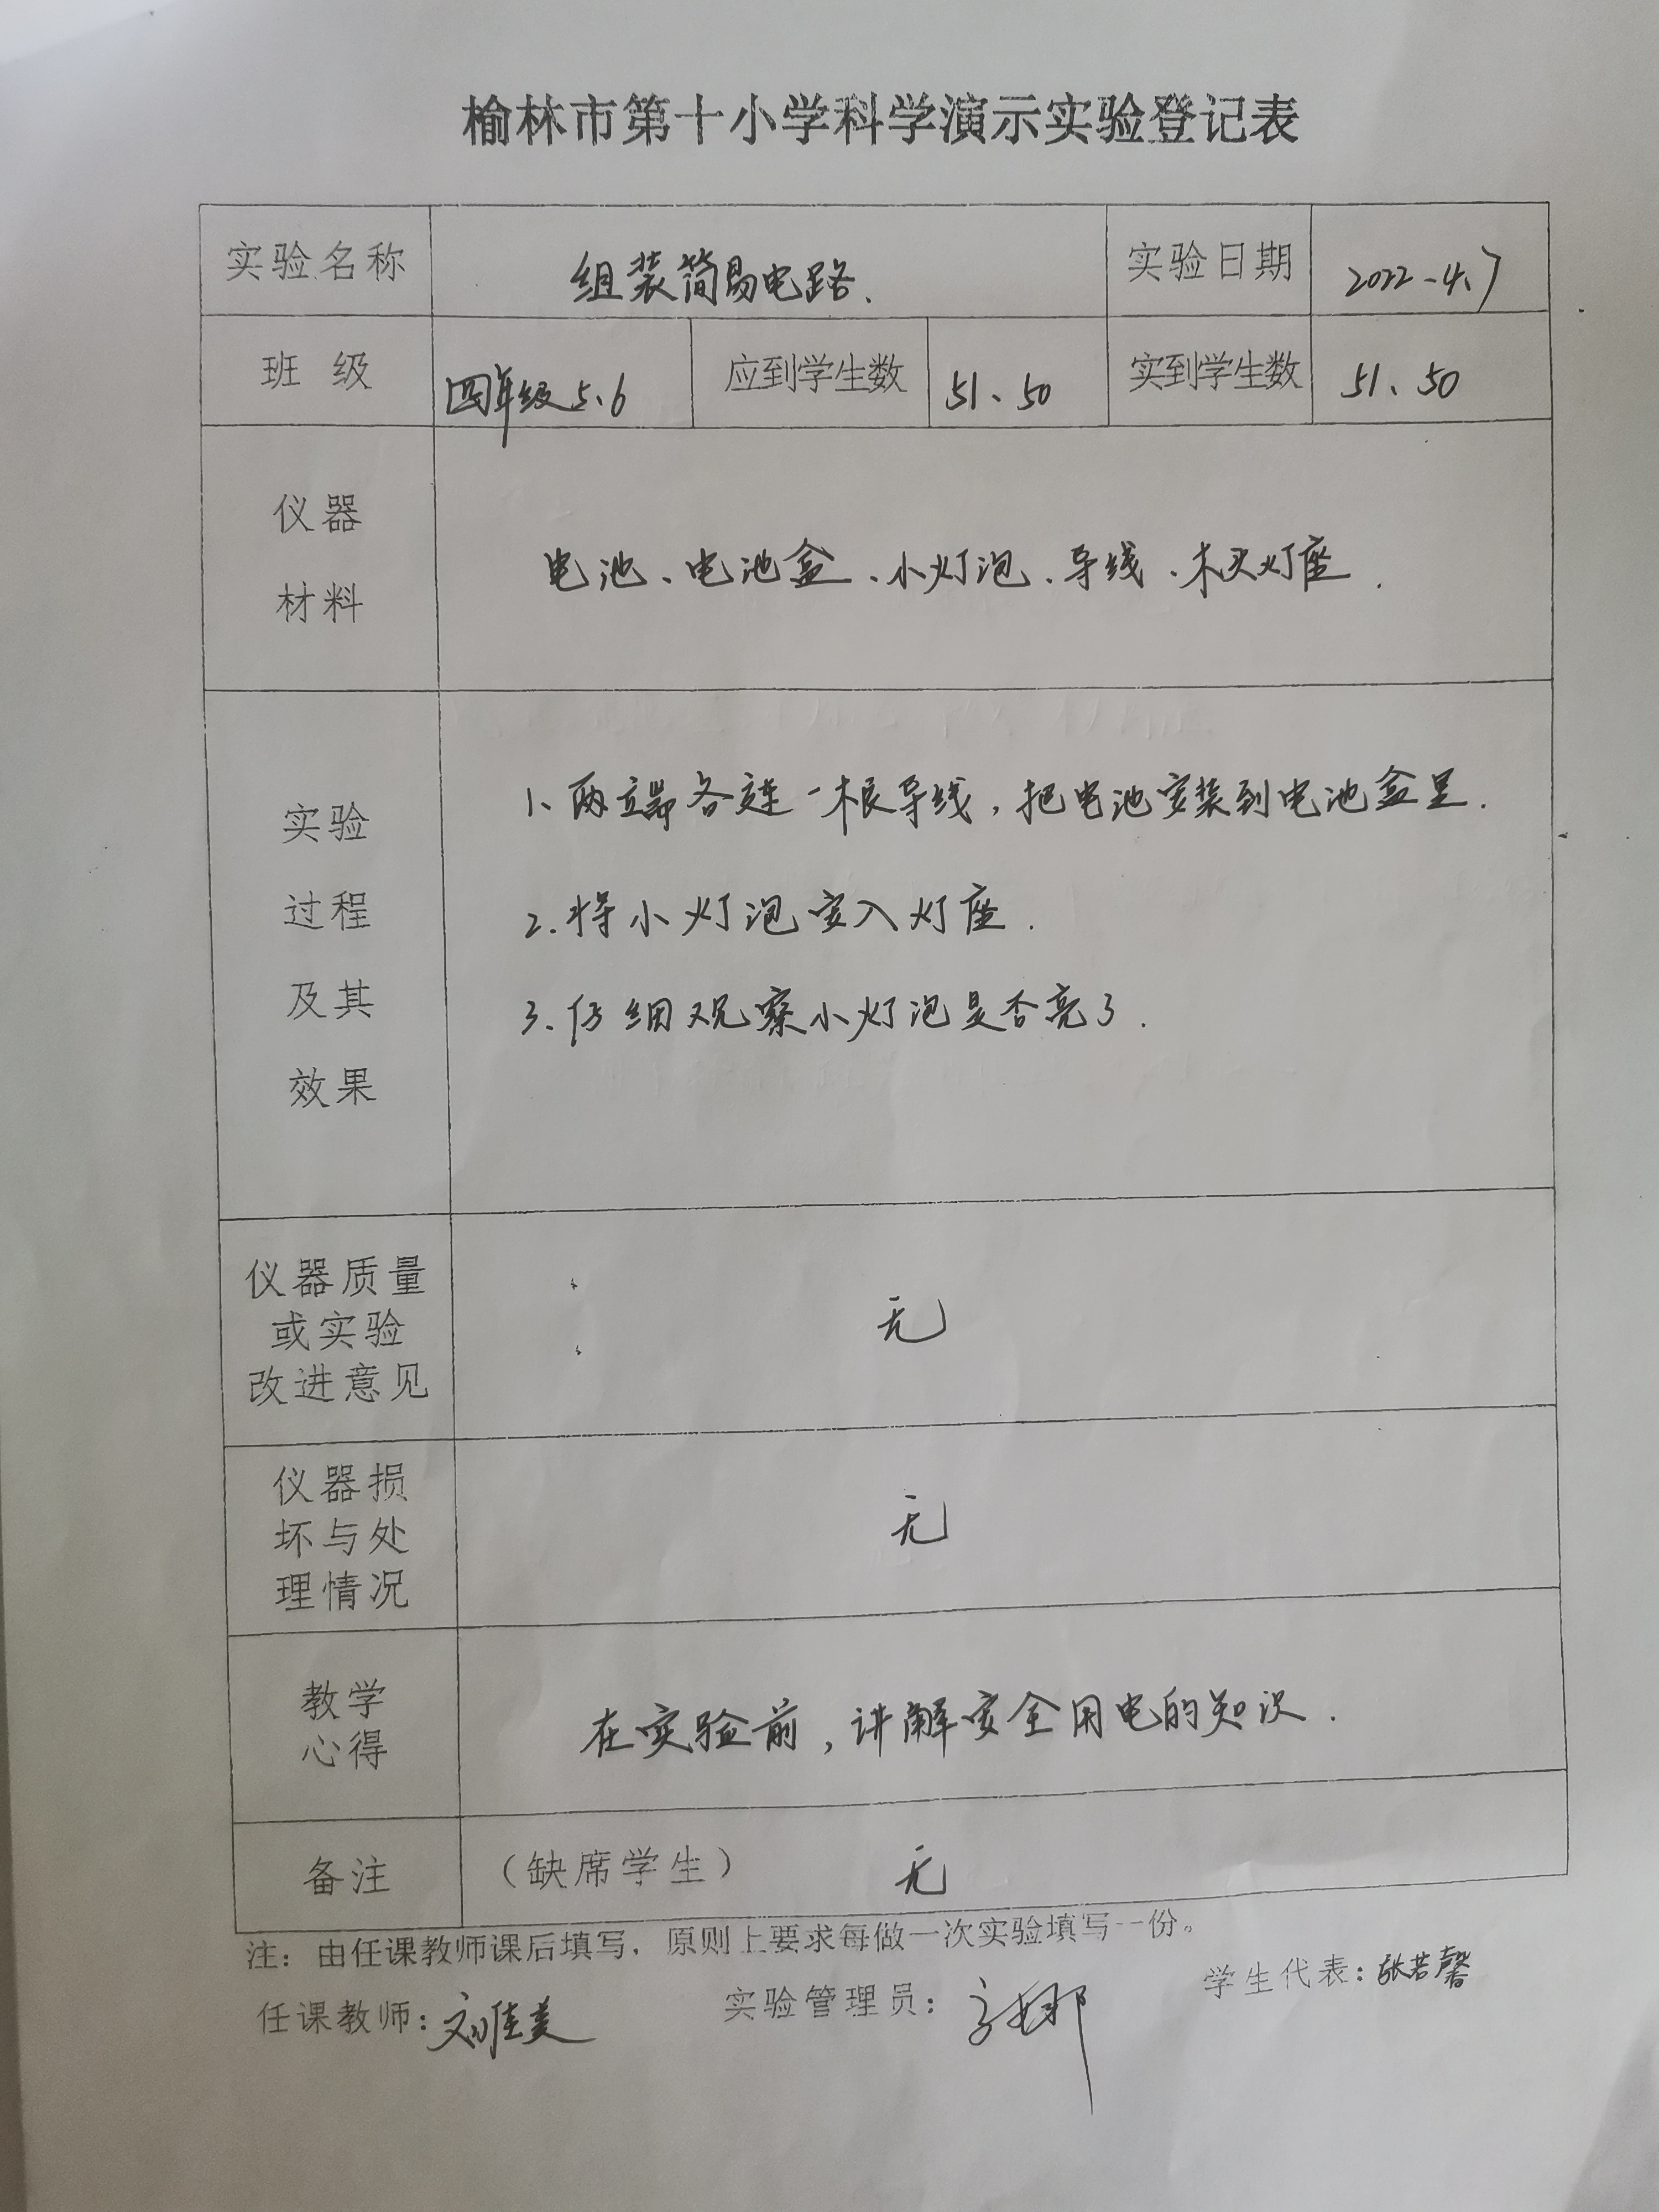 榆林市第十小学科学演示实验登记表
实验名称 组装简易电路. 实验日期 2022-4.7
班 级 四年级5、6 应到学生数 51、50 实到学生数 51、50
仪器
材料
电池、电池盒、小灯泡、导线、木头灯座.
实验
过程
及其
效果
1、两端各连一根导线,把电池安装到电池盒里.
2.将小灯泡安入灯座.
3、仔细观察小灯泡是否亮了.
仪器质量
或实验
改进意见
无
仪器损
坏与处
理情况
无
教学
心得
在实验前,讲解安全用电的知识.
备注 (缺席学生) 无
注:由任课教师课后填写,原则上要求每做一次实验填写一份。
任课教师:刘佳美 实验管理员: 学生代表:张若馨